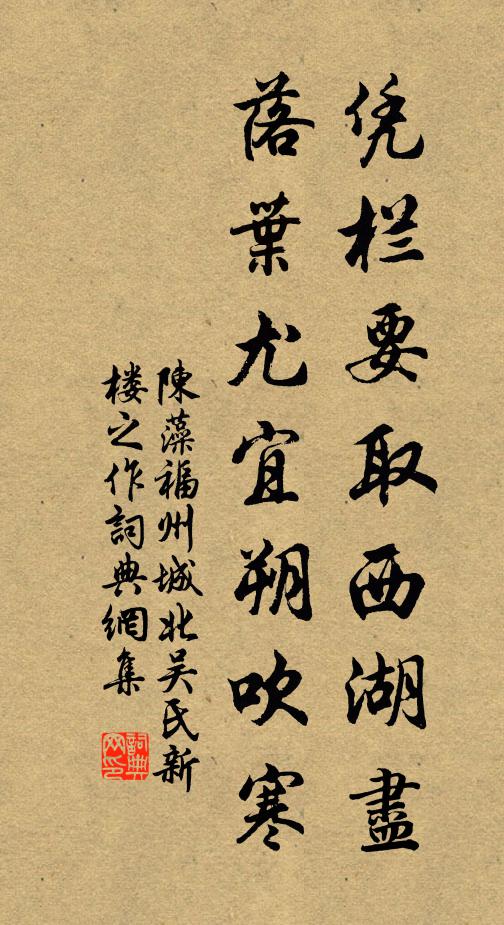 凭栏要取西湖盡
落葉尤宜朔吹寒
陳藻福州城北吴氏新
楼之作詞典網集
詞典
网印